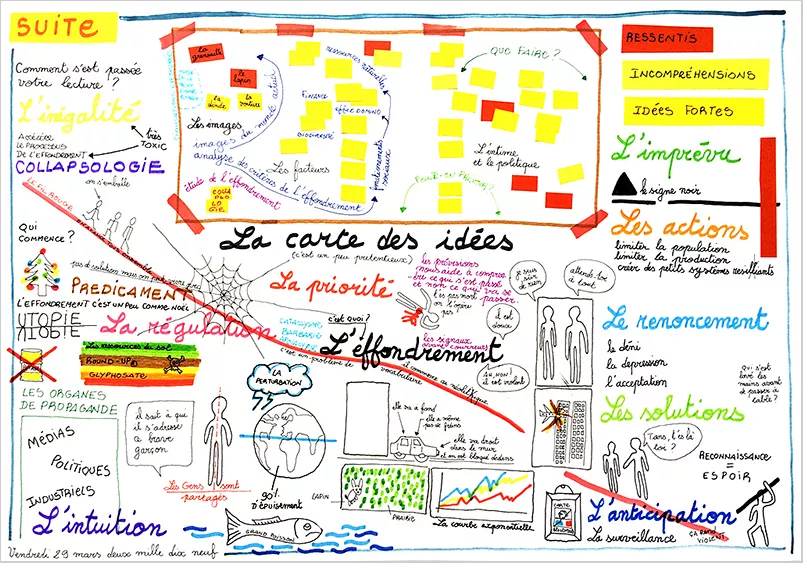 SUITE
Comment s'est passée
votre lecture ?
L'inégalité
très
TOXIC
ACCÉLÈRE
LE PROCESSUS
DE L'EFFONDREMENT
COLLAPSOLOGIE
on s'emballe
LE FIL ROUGE
QUI
COMMENCE ?
pas de solution mais on peut vivre avec
PREDICAMENT
L'EFFONDREMENT C'EST UN PEU COMME NOËL
UTOPIE
UTOPIE
La régulation
Les ressources du sol
ROUND-UP
GLYPHOSATE
LES ORGANES
DE PROPAGANDE
MÉDIAS
POLITIQUES
INDUSTRIELS
L'intuition
Vendredi 29 mars deux mille dix neuf
la grenouille
le lapin
la dinde
la voiture
Les images
images du monde actuel
analyse des critères de l'effondrement
étude de l'effondrement
COLLA
PSO
LO
GIE
ressources naturelles
FINANCE
EFFET DOMINO
BIODIVERSITÉ
Les facteurs
phénomènes sociaux
QUE FAIRE ?
L'intime
et le politique
PEUT-ON PRÉVOIR ?
La carte des idées
(c'est un peu prétentieux)
La priorité
les prévisions
nous aide à compren-
dre ce qui s'est passé
et non ce qui va se
passer.
T'es pas mort
on l'opère
pas
les signaux
avant-coureurs
CATACLYSME
BARBARIE
APOCALYPSE
c'est quoi ?
L'éffondrement
c'est un problème de
vocabulaire
je suis
sûr
de rien
attends-toi
à tout
il est
doux
AH, NON !
il est violent
LA
PERTURBATION
il sait à qui
il s'adresse
ce brave
garçon
Les Gens sont
partagés
90%
D'ÉPUISEMENT
GRAND POISSON
elle va à fond
elle a même
pas de freins
elle va droit
dans le mur
et on est bloqué dedans
LAPIN
PRAIRIE
La courbe exponentielle
RESSENTIS
INCOMPRÉHENSIONS
IDÉES FORTES
L'imprévu
le signe noir
Les actions
limiter la population
limiter la production
créer des petits systèmes résilliants
Le renoncement
le déni
la dépression
l'acceptation
qui s'est
lavé les
mains avant
de passer à
table ?
Les solutions
Tiens, t'es là
toi ?
RECONNAISSANCE
=
ESPOIR
CARTE
L'anticipation
La surveillance
ÇA REND
VIOLENT